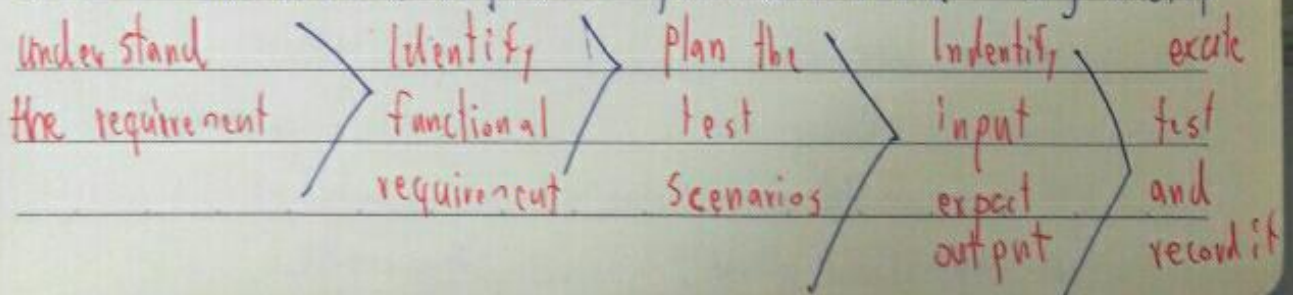 understand
the requirement
Identify
functional
requirement
Plan the
test
Scenarios
Indentify
input
expect
output
excute
test
and
record it